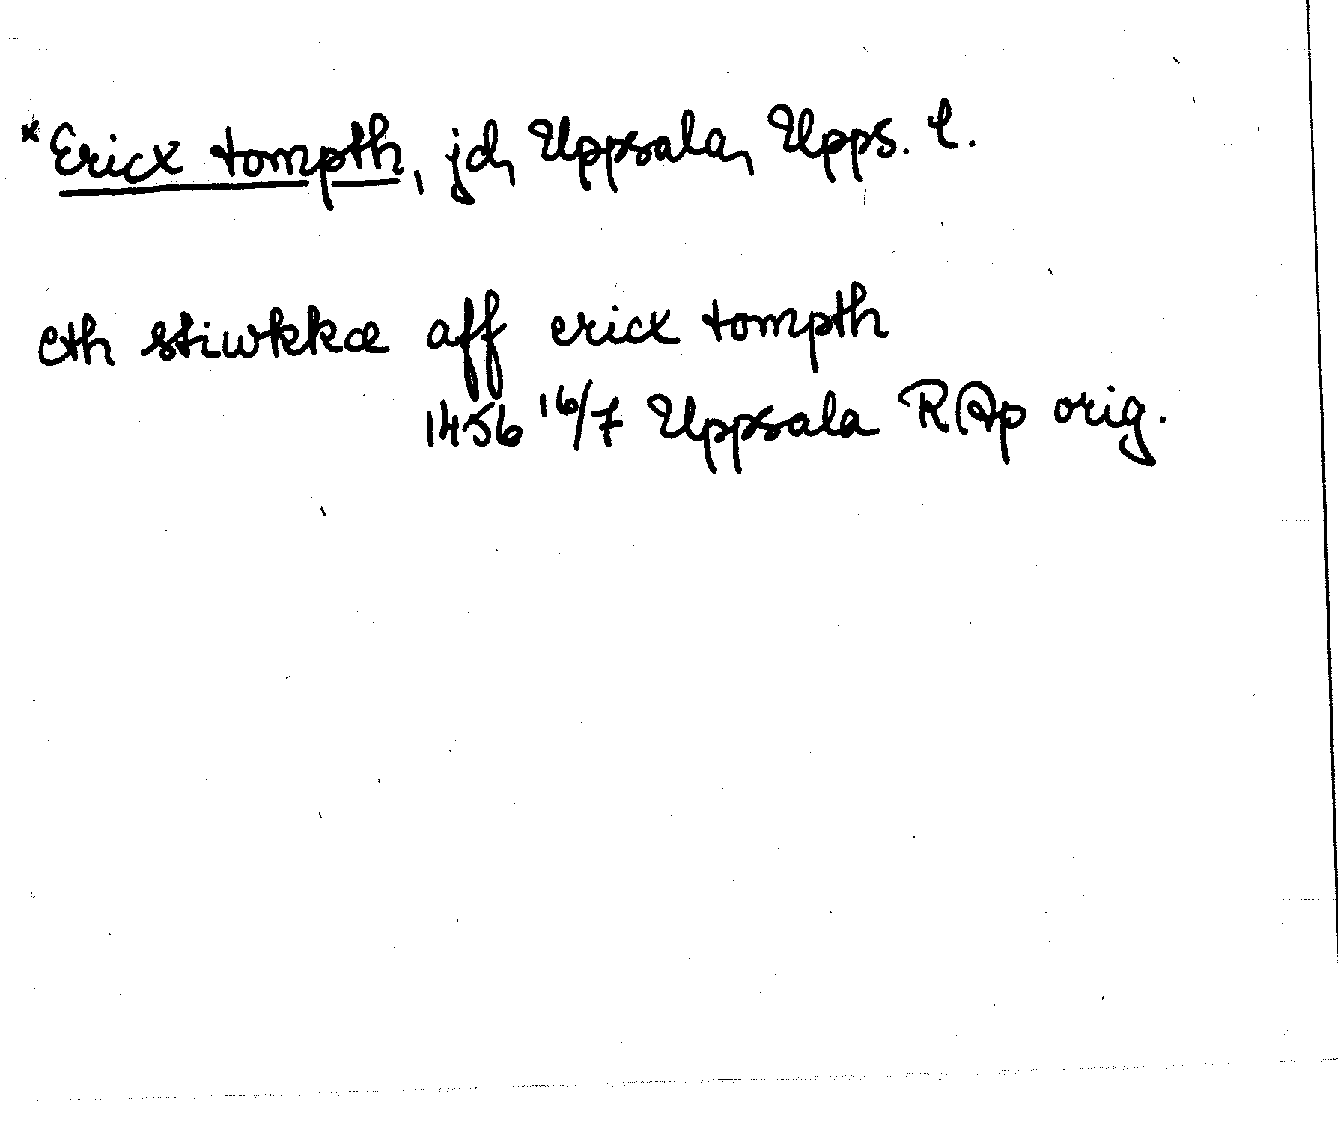 *Ericx tompth, jd, Uppsala, Upps. l.
eth stiwkkæ aff ericx tompth
1456 16/7 Uppsala RAp orig.